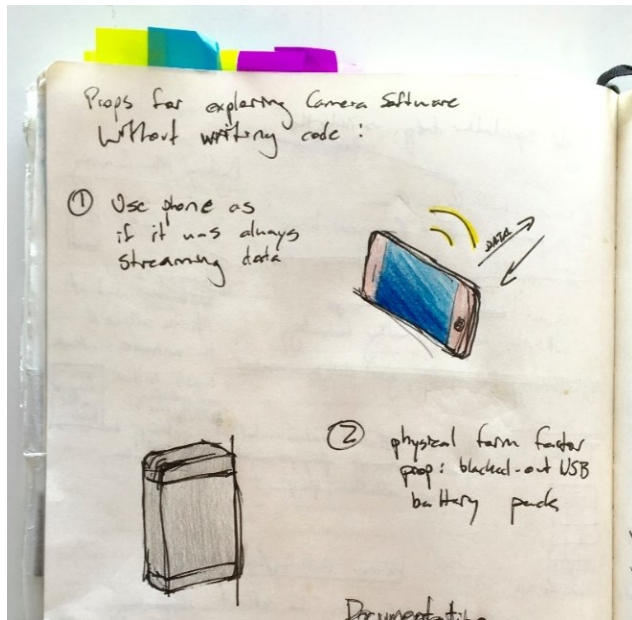 Props for exploring Camera Software
Without writing code :
① Use phone as
if it was always
streaming data
DATA
② physical form factor
prop: blacked-out USB
battery pack
Documentation